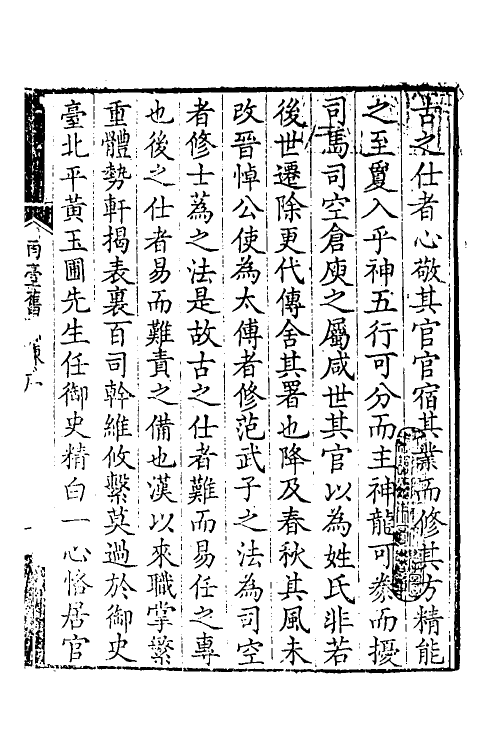 古之仕者心敬其官官宿其業而修其方精能
之至夐入乎神五行可分而主神龍可豢而擾
司馬司空倉庾之屬咸世其官以為姓氏非若
後世遷除更代傳舍其署也降及春秋其風未
改晉悼公使為太傅者修范武子之法為司空
者修士蒍之法是故古之仕者難而易任之專
也後之仕者易而難責之備也漢以來職掌繁
重體勢軒揭表裏百司幹維攸繫莫過於御史
臺北平黃玉圃先生任御史精白一心恪居官
南臺舊
一